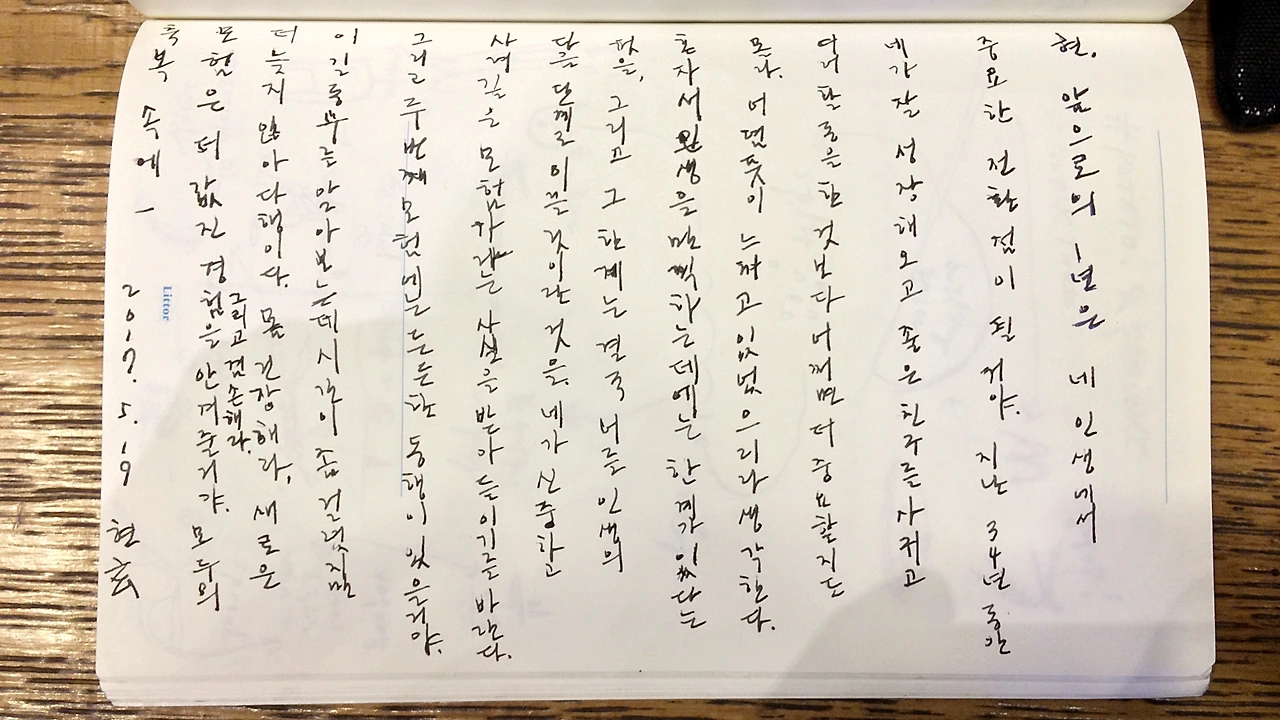 현. 앞으로의 1년은 네 인생에서
중요한 전환점이 될 거야. 지난 34년 동안
네가 잘 성장해오고 좋은 친구를 사귀고
여러 활동을 한 것보다 어쩌면 더 중요할지도
몰라. 어렴풋이 느끼고 있었으리라 생각한다.
혼자서 인생을 만끽하는데에는 한계가 있다는
것을, 그리고 그 한계는 결국 너를 인생의
다음 단계로 이끌 것이란 것을. 네가 신중한
사려깊은 모험가라는 사실을 받아들이기를 바란다.
그리고 두번째 모험에는 든든한 동행이 있을거야.
이 길동무를 알아보는데 시간이 좀 걸렸지만
더 늦지 않아 다행이다. 몸 건강해라, 새로운
그리고 겸손해라.
모험은 더 값진 경험을 안겨줄거야. 모두의
축복 속에 -
2017. 5. 19 현玄
Littor